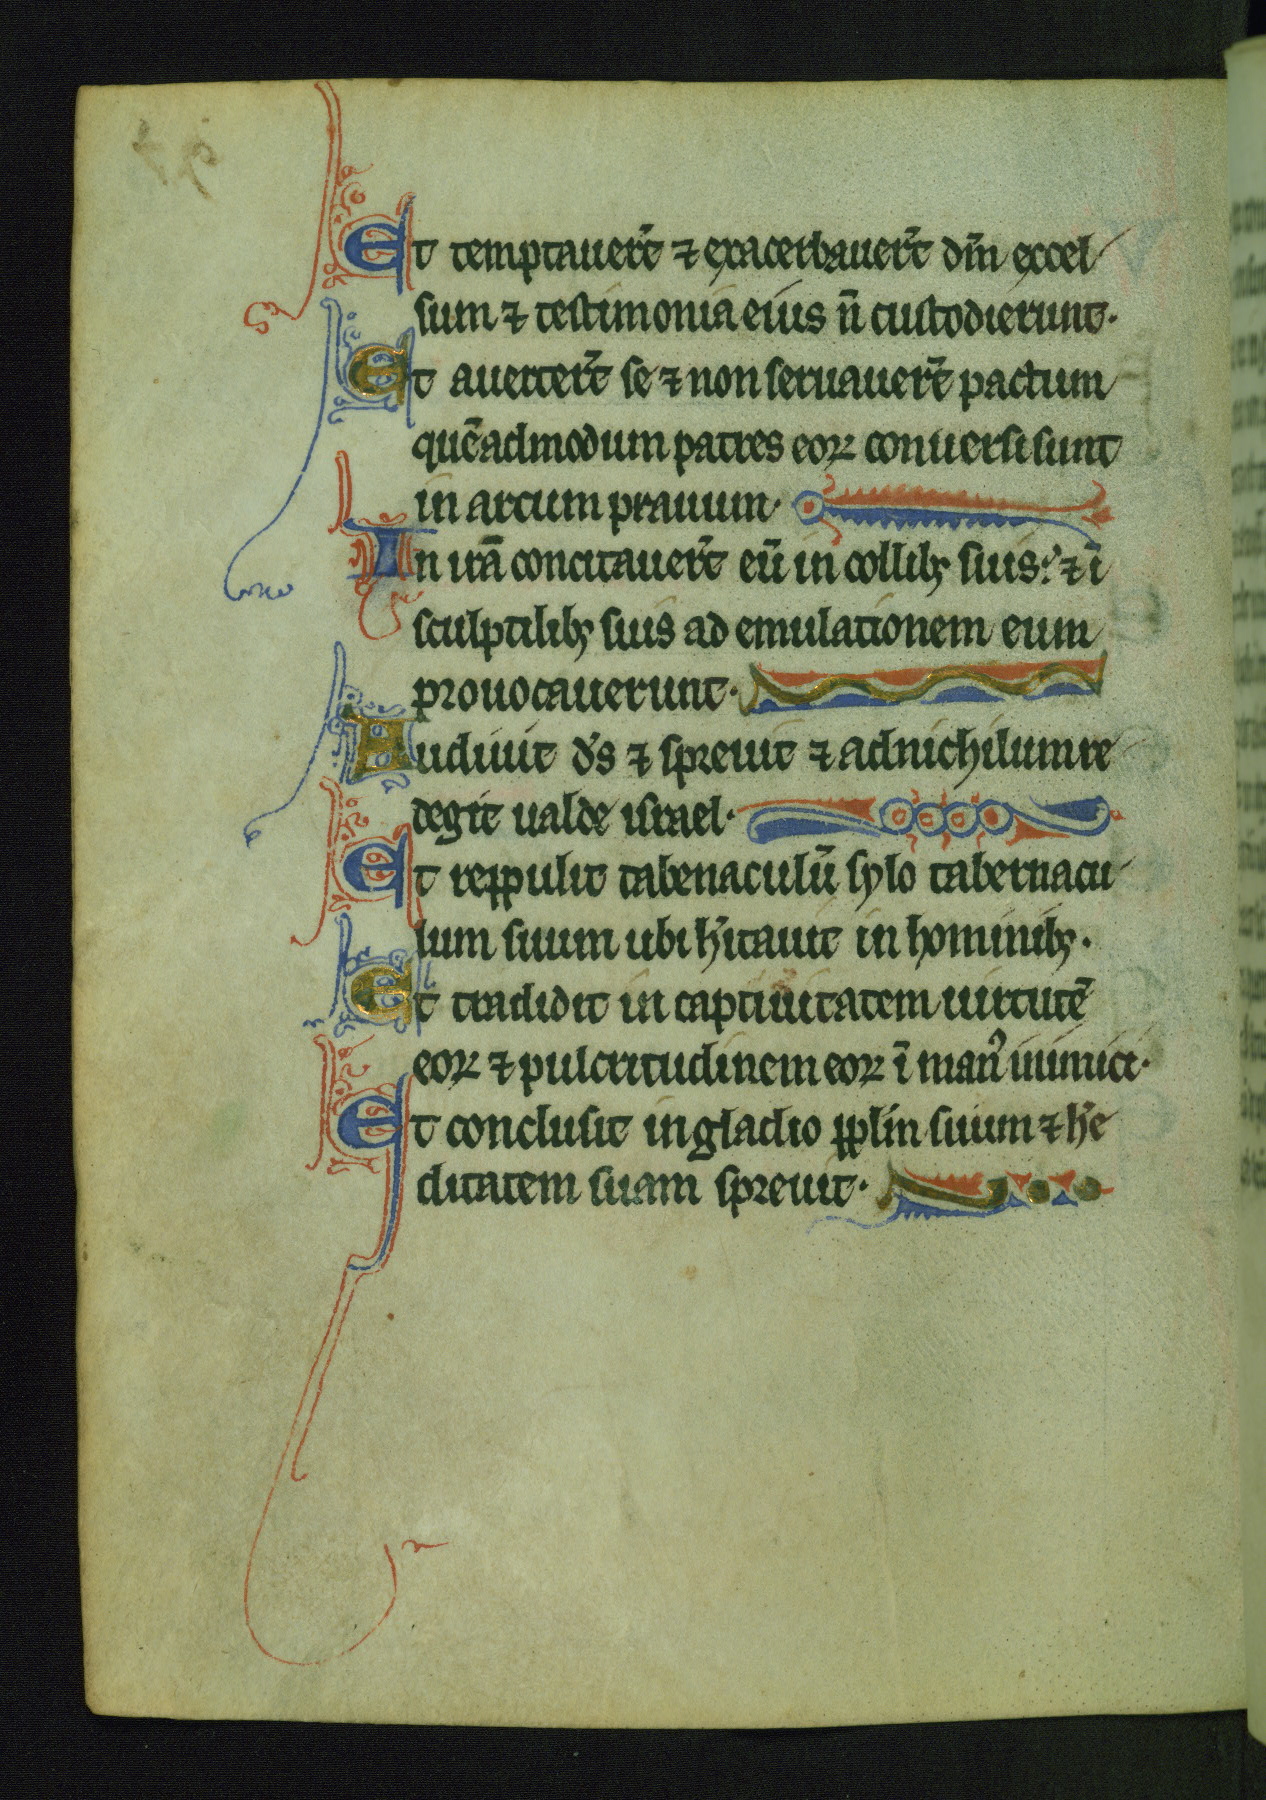 Et temptauer̄t ⁊ exacerbauer̄t dm̄ excel
sum ⁊ testimonia eius n̄ custodierunt·
Et auerter̄t se ⁊ non seruauer̄t pactum
quēadmodum patres eoꝝ conuersi sunt
in arcum prauum·
In irā concitauer̄t eū in collibꝫ suis: ⁊ ī
sculptilibꝫ suis ad emulationem eum
prouocauerunt·
Audiuit ds̄ ⁊ spreuit ⁊ adnichilum re
degit ualde israel·
Et reppulit tabenaculū sylo tabernacu
lum suum ubi hītauit in hominibꝫ·
Et tradidit in captiuitatem uirtutē
eoꝝ ⁊ pulcritudinem eoꝝ ī manꝰ inimici·
Et conclusit in gladio pplm̄ suum ⁊ he̾
ditatem suam spreuit·